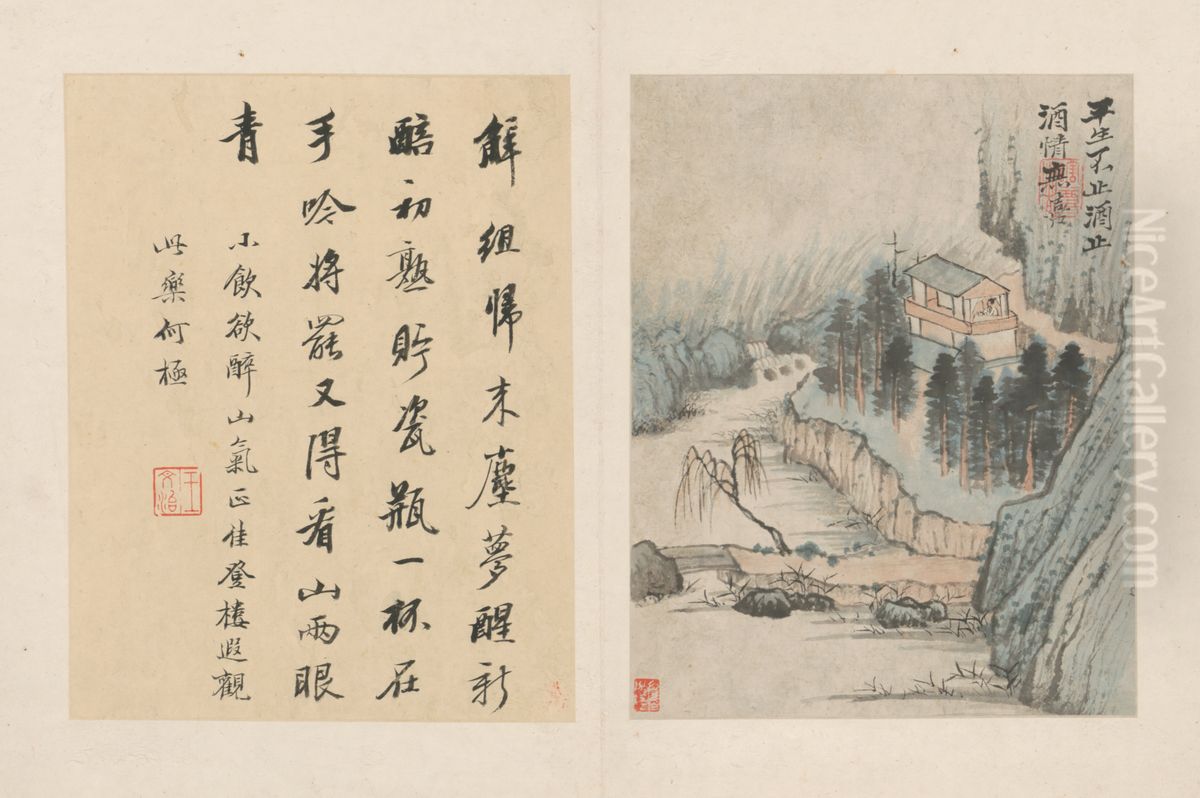 平生不止酒止
酒情無喜
解組歸来塵夢醒新
醅初熟貯瓷瓶一杯在
手吟將罷又得看山兩眼
青
小飲欲醉山氣正佳登樓遐觀
此樂何極
王文治
NiceArtGallery.com